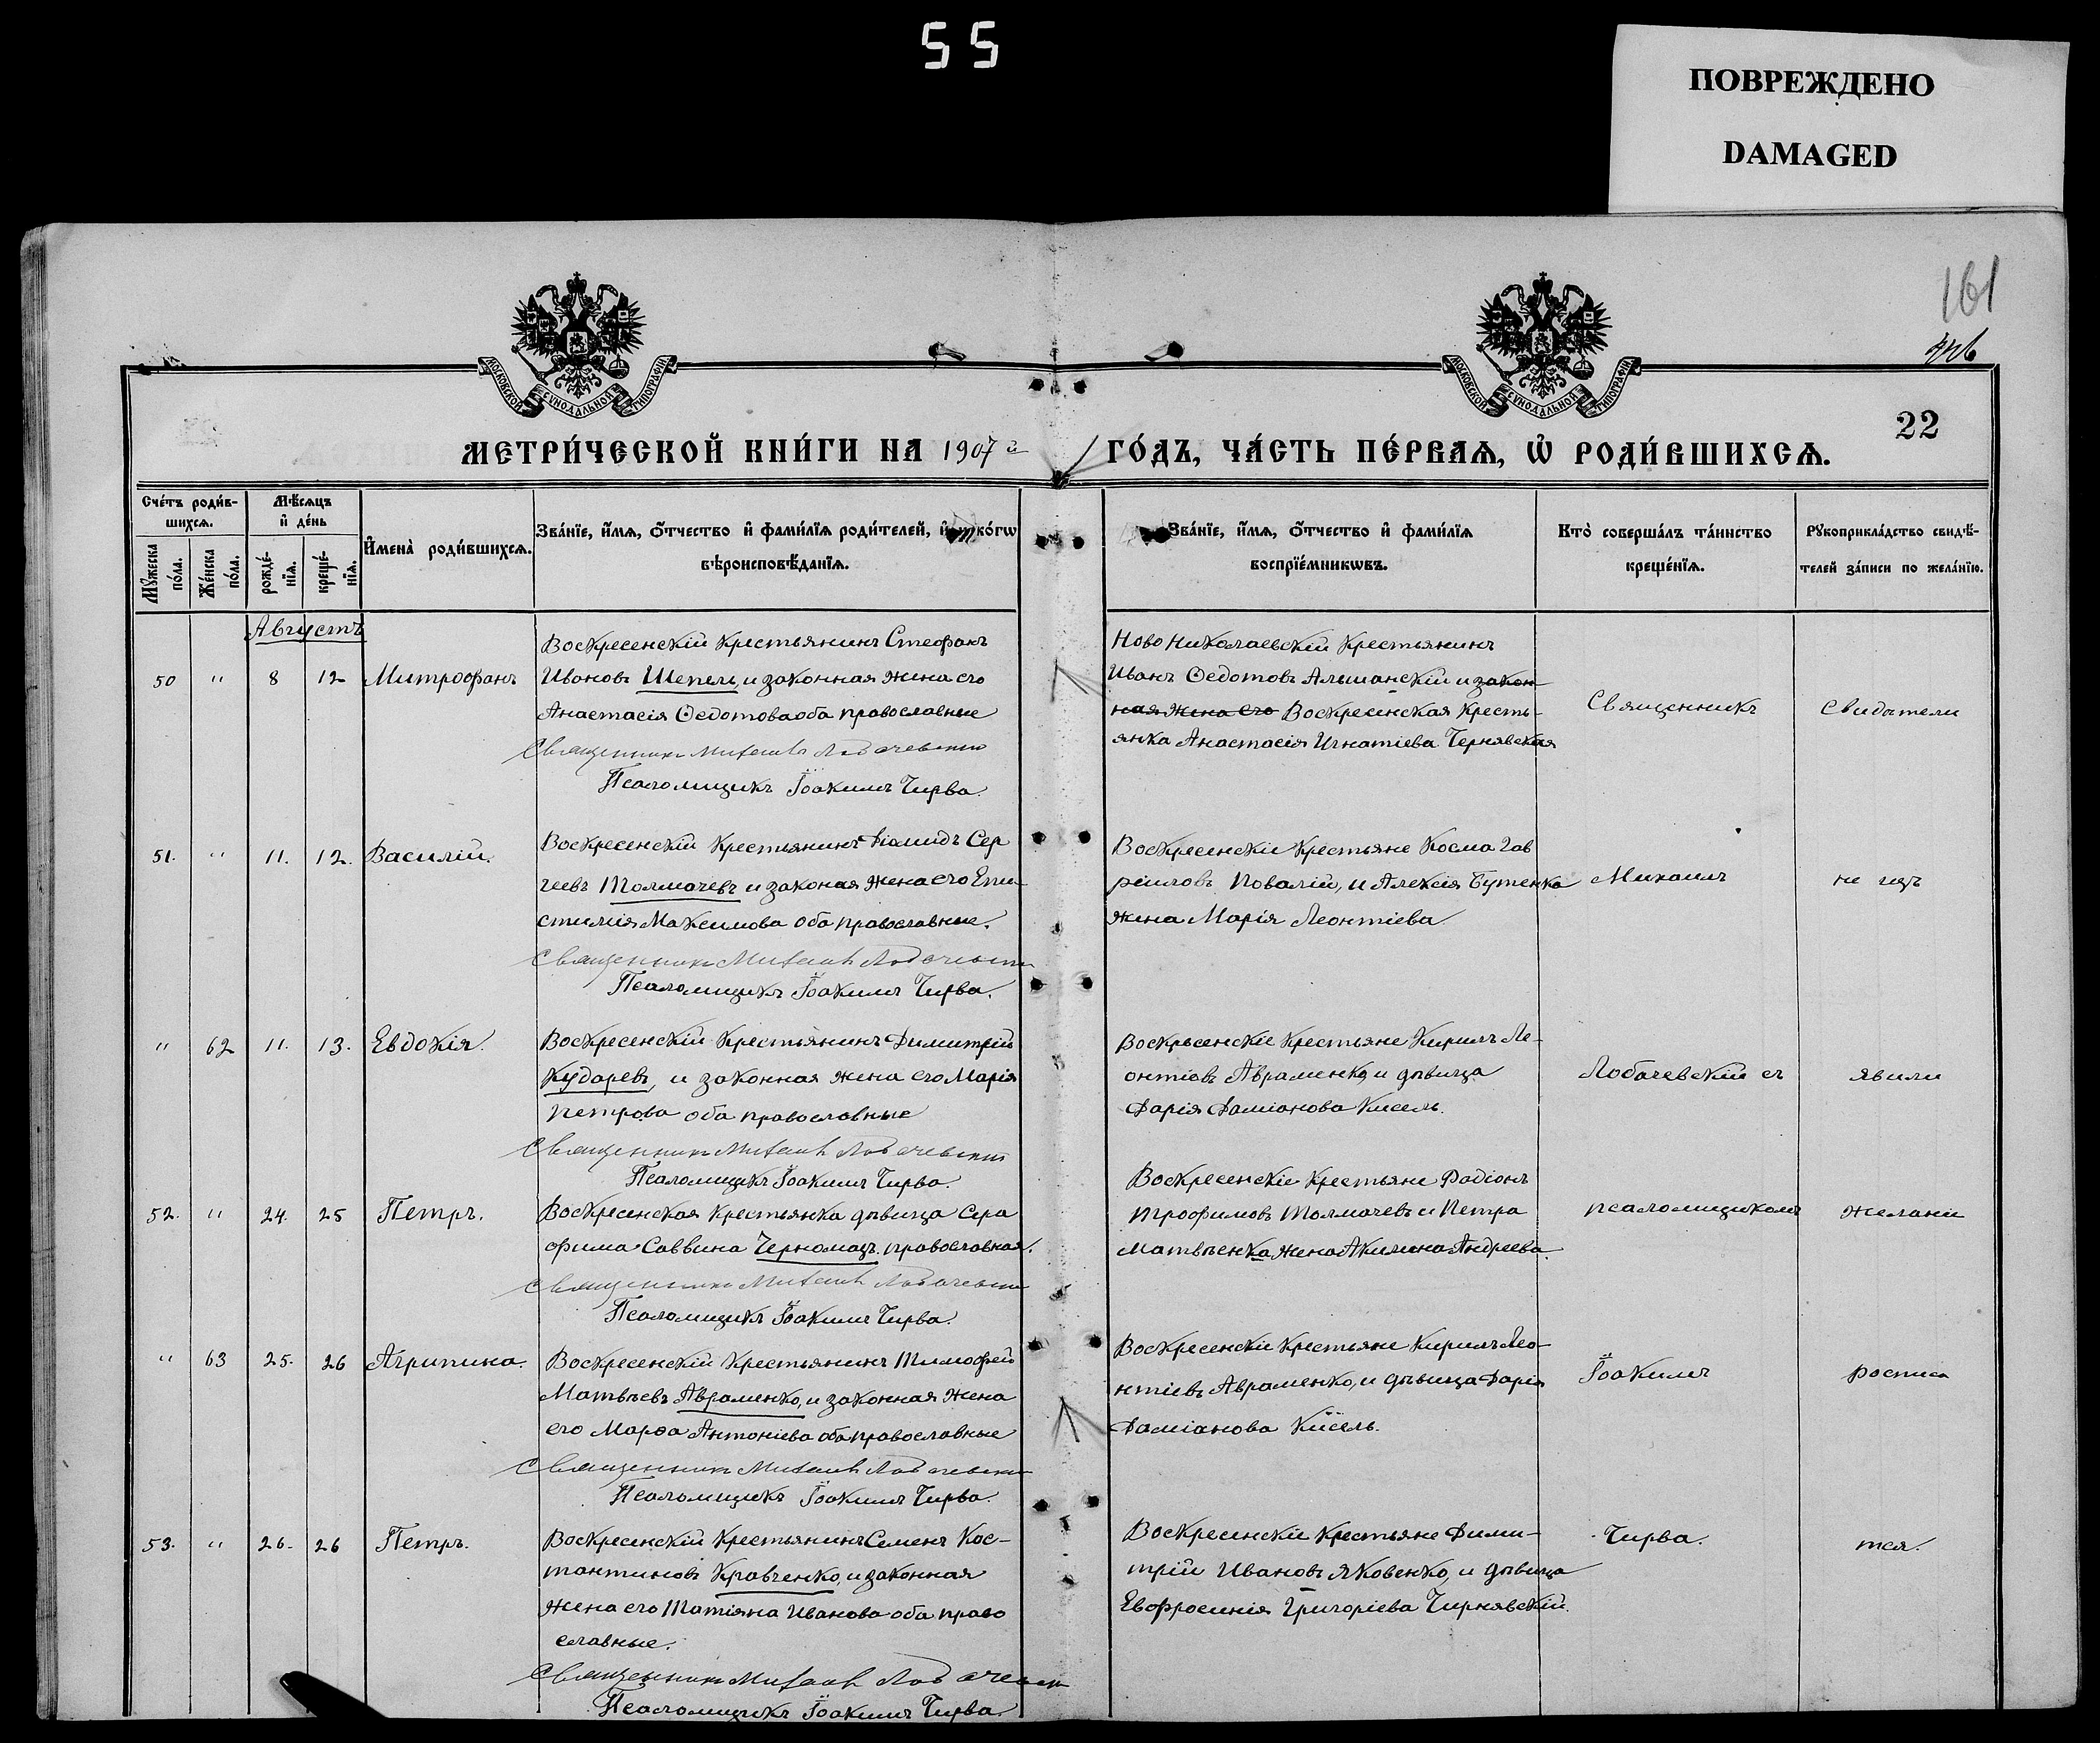 55
ПОВРЕЖДЕНО
DAMAGED
161
МОСКОВСКОЙ СѴНОДАЛЬНОЙ ТИПОГРАФІИ
МОСКОВСКОЙ СѴНОДАЛЬНОЙ ТИПОГРАФІИ
22
МЕТРИ́ЧЕСКОЙ КНИ́ГИ НА 1907 й
ГО́ДЪ, ЧА́СТЬ ПЕ́РВАѦ, Ѽ РОДИ́ВШИХСѦ.
Сче́тъ роди́в-
шихсѧ.
Мѣ́сѧцъ
и҆ де́нь
Мꙋ́жеска по́ла.
Же́нска по́ла.
рожде́-нїѧ.
креще́-нїѧ.
И҆мена̀ роди́вшихсѧ.
Зва́нїе, и҆́мѧ, ѻ҆́тчество и҆ фами́лїѧ роди́телей, и҆ како́гѡ
вѣроисповѣ́данїѧ.
Зва́нїе, и҆́мѧ, ѻ҆́тчество и҆ фами́лїѧ
воспрїе́мникѡвъ.
Кто̀ соверша́лъ та́инство
креще́нїѧ.
Рꙋкоприкла́дство свидѣ́-
телей за́писи по жела́нїю.
Августъ
50 " 8 12 Митрофанъ
Воскресенскій Крестьянинъ Стефанъ
Ивановъ Шепель, и законная жена его
Анастасія Ѳедотова оба православные
Священникъ Михаилъ Лобачевский
Псаломщикъ Іоакимъ Чирва.
Ново Николаевскій Крестьянинъ
Иванъ Ѳедотовъ Альшанскій и закон-
ная жена его Воскресенская Кресть-
янка Анастасія Игнатіева Чернявская
Священникъ
Свидетели
51. " 11. 12. Василій.
Воскресенскій Крестьянинъ Діамидъ Сер
геевъ Толмачевъ и законая жена его Епи-
стимія Максимова оба православные.
Священникъ Михаилъ Лобачевский
Псаломщикъ Іоакимъ Чирва.
Воскресенскіе Крестьяне Косма Гав
ріиловъ Повалій, и Алексія Бутенка
жена Марія Леонтіева
Михаилъ
не изъ
" 62 11. 13. Евдокія.
Воскресенскій Крестьянинъ Димитрій
Кударевъ, и законная жена его Марія
Петрова оба православные
Священникъ Михаилъ Лобачевский
Псаломщикъ Іоакимъ Чирва.
Воскрьсенскіе Крестьяне Кирилъ Ле-
онтіевъ Авраменко, и дѣвица
Дарія Даміанова Кисель.
Лобачевскій съ
явили
52. " 24. 25 Петръ.
Воскресенская Крестьянка дѣвица Сера
фима Саввина Черномазъ. православная.
Священникъ Михаилъ Лобачевский
Псаломщикъ Іоакимъ Чирва.
Воскресенскіе Крестьяне Радіонъ
Трофимовъ Толмачевъ и Петра
Матвѣенка жена Акилина Андреева.
псаломщикомъ
желани
" 63 25. 26 Агрипина.
Воскресенскій Крестьянинъ Тимофей
Матвѣевъ Авраменко, и законная жена
его Марѳа Антоніева оба православные
Священникъ Михаилъ Лобачевский
Псаломщикъ Іоакимъ Чирва.
Воскресенскіе Крестьяне Кирилъ Лео-
нтіевъ Авраменко, и дѣвица Дарія
Даміанова Кисель.
Іоакимъ
росписа
53. " 26. 26 Петръ.
Воскресенскій Крестьянинъ Семенъ Кос-
тантиновъ Кравченко, и законная
жена его Татіяна Иванова оба право
славные.
Священникъ Михаилъ Лобачевский
Псаломщикъ Іоакимъ Чирва.
Воскресенскіе Крестьяне Дими-
трій Ивановъ Яковенко, и дѣвица
Евфросинія Григоріева Чирнявскій.
Чирва.
тся.